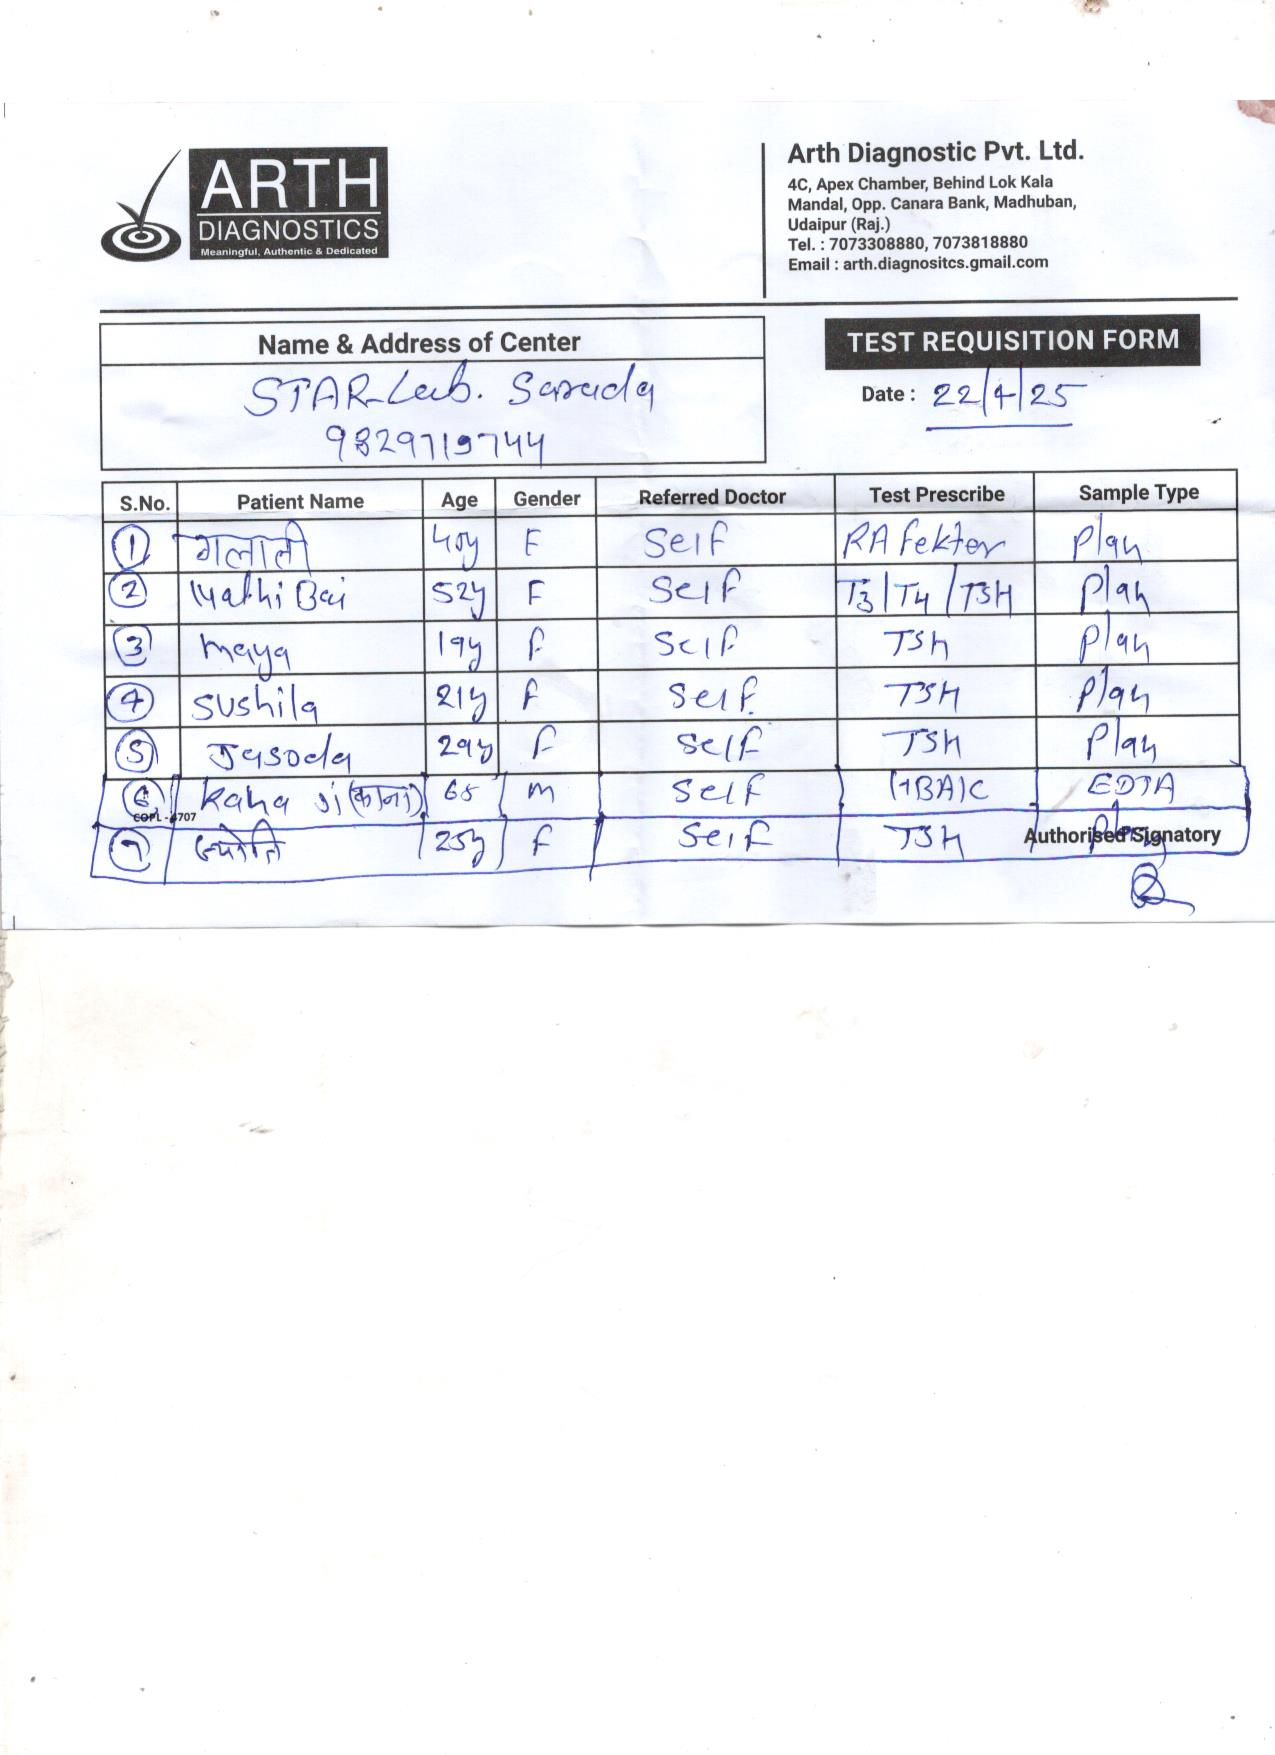 ARTH
DIAGNOSTICS
Meaningful, Authentic & Dedicated
Arth Diagnostic Pvt. Ltd.
4C, Apex Chamber, Behind Lok Kala
Mandal, Opp. Canara Bank, Madhuban,
Udaipur (Raj.)
Tel. : 7073308880, 7073818880
Email : arth.diagnositcs.gmail.com
Name & Address of Center
STAR Lab. Sarada
9829719744
TEST REQUISITION FORM
Date : 22/4/25
S.No. Patient Name Age Gender Referred Doctor Test Prescribe Sample Type
1 गलाती 40y F Self RA fekter Plan
2 Bai 52y F Self T3/T4/TSH Plan
3 maya 19y F Self TSH Plan
4 Sushila 21y F Self. TSH Plan
5 Jasoda 29y F Self TSH Plan
6 Kana Ji (काना) 68 m Self HBA1C EDTA
COPL - 4707
7 ज्योति 25y F Self TSH Plan
Authorised Signatory